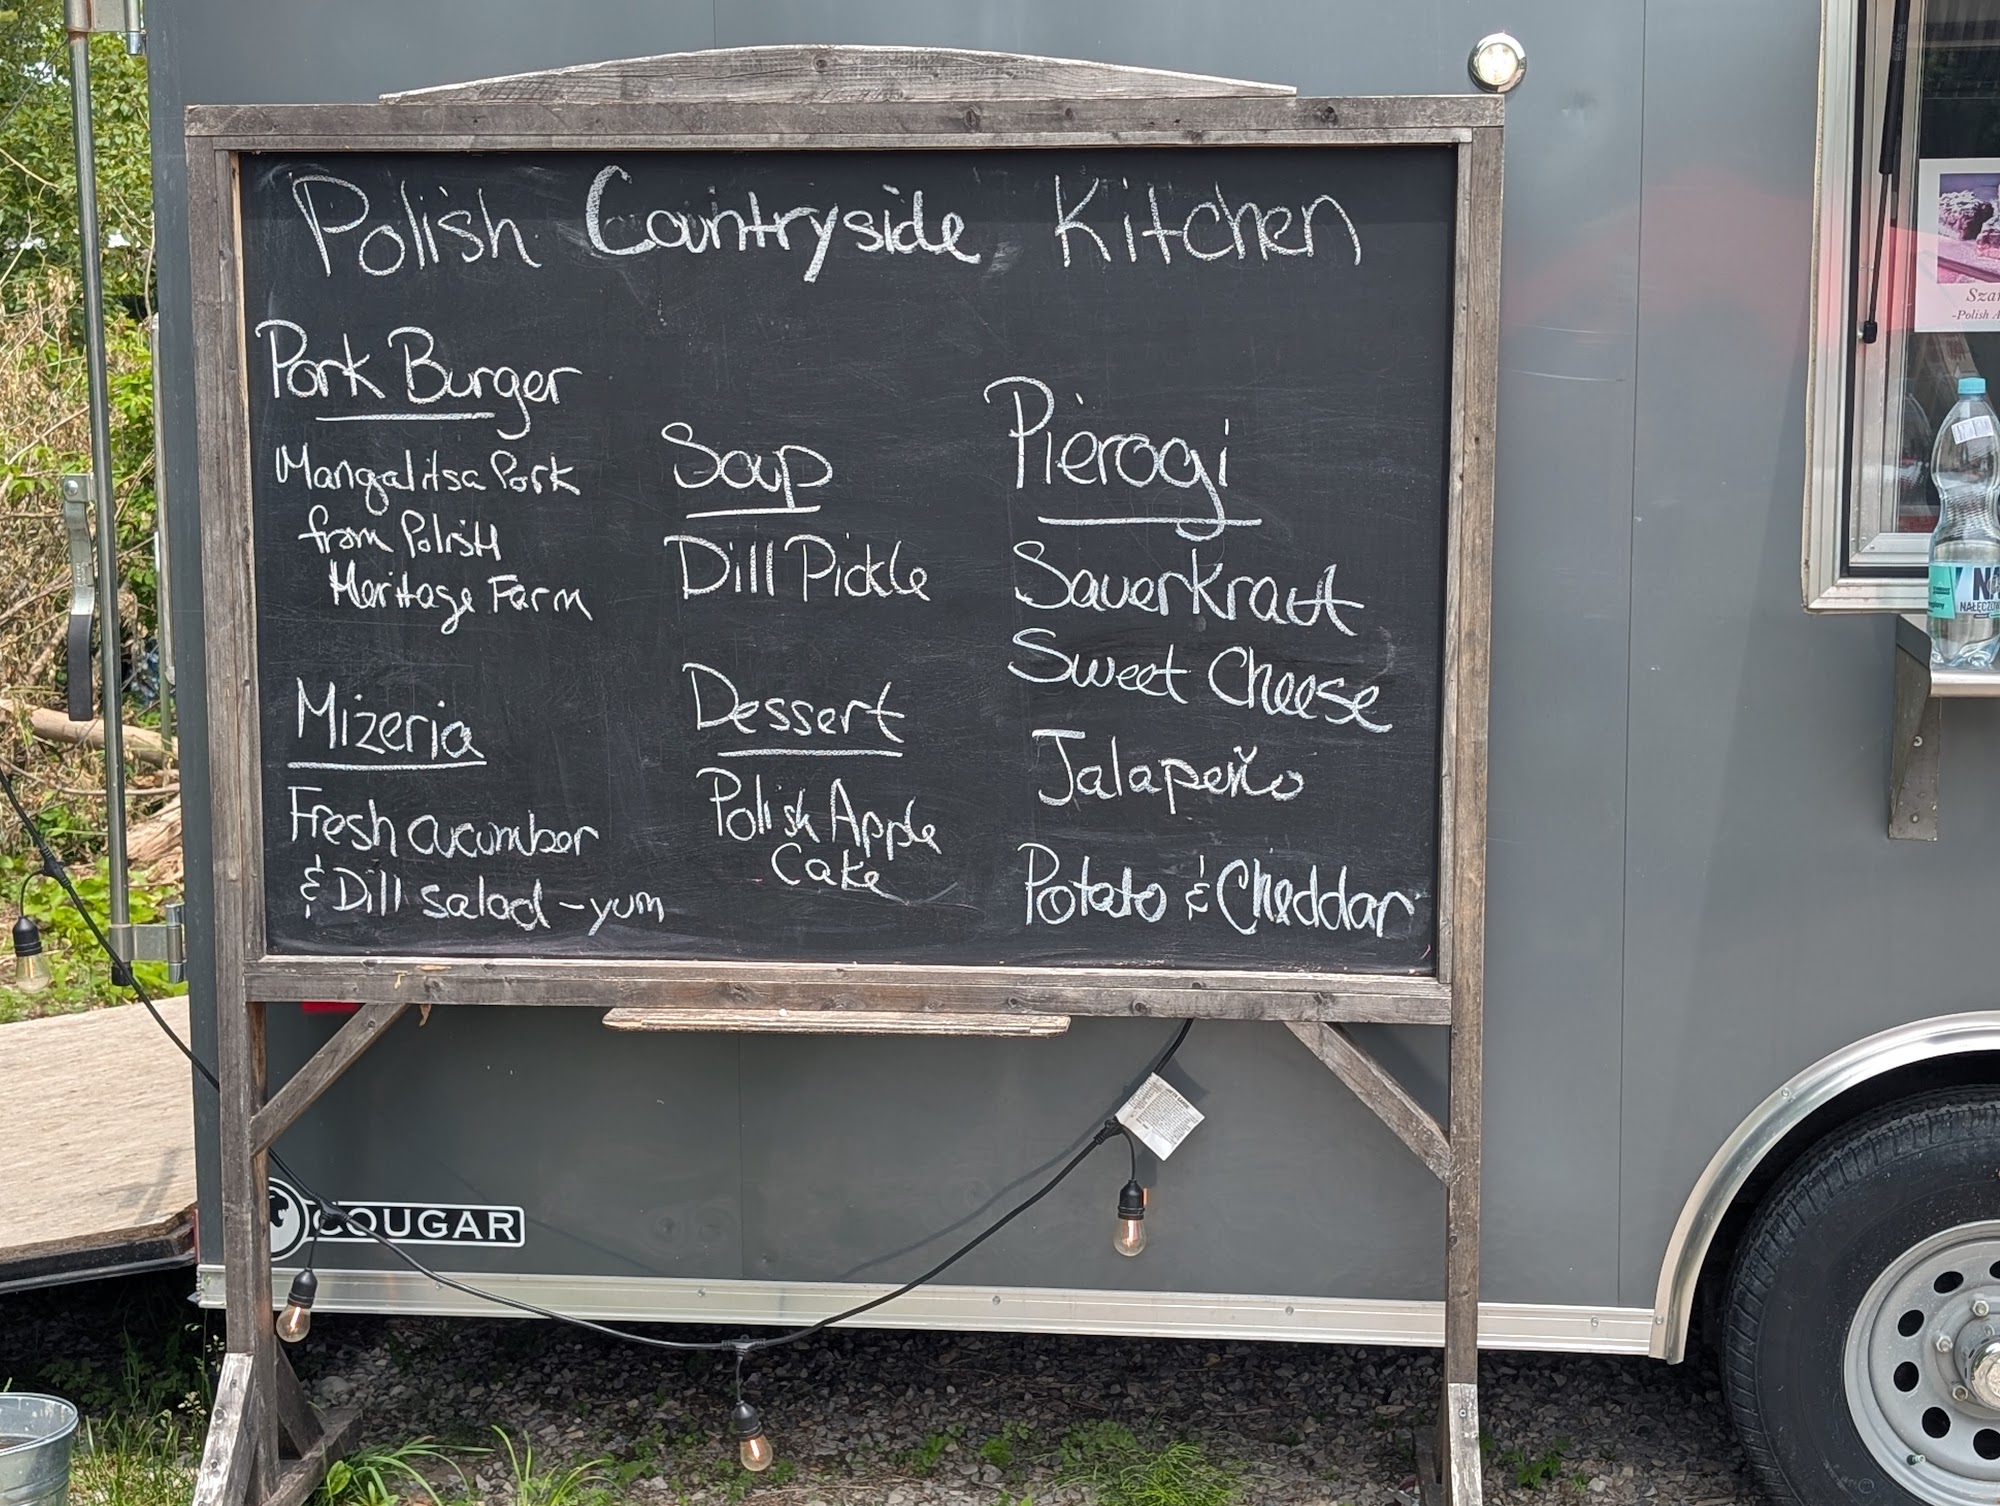 Polish Countryside Kitchen
Pork Burger
Mangalitsa Pork
from Polish
Heritage Farm
Mizeria
Fresh cucumber
& Dill salad - yum
Soup
Dill Pickle
Dessert
Polish Apple
Cake
Pierogi
Sauerkraut
Sweet Cheese
Jalapeño
Potato & Cheddar
COUGAR
-Polish